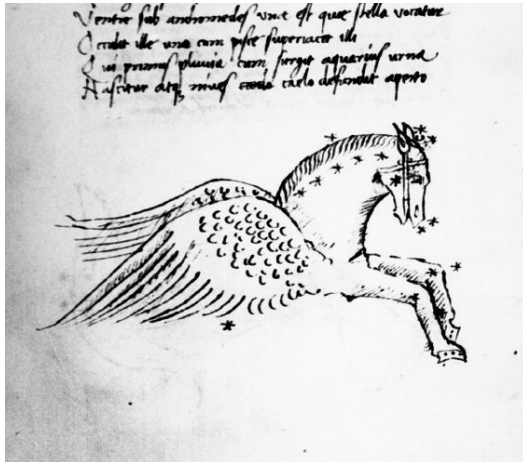 Ventre sub andromedes una est quae stella vocatur
Occidit ille una cum pisce superiacet illi
Qui primus pluvia cum surgit aquarius urna
Nascitur atq; nives caelo defundit aperto